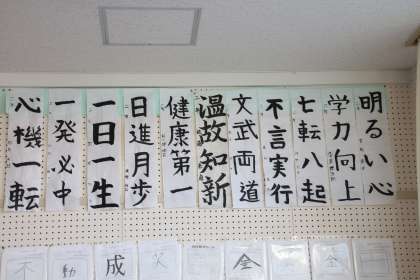 明るい心
学力向上
七転八起
不言実行
文武両道
温故知新
健康第一
日進月歩
一日一生
一発必中
心機一転
不
動
成
全